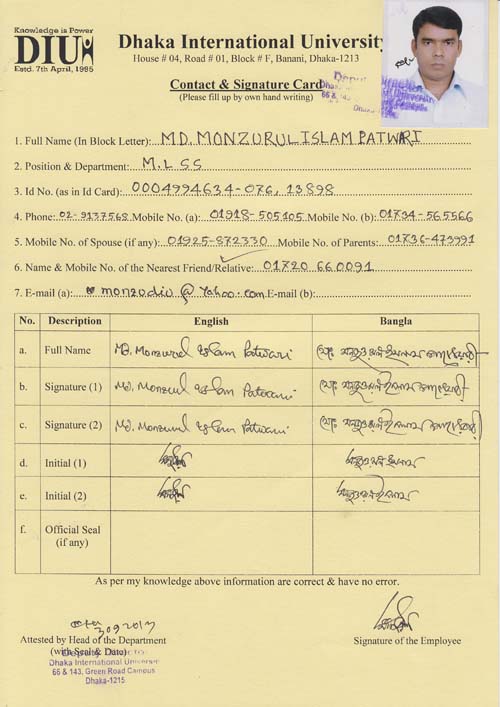 Knowledge is Power
DIU
Estd. 7th April, 1995
Dhaka International University
House # 04, Road # 01, Block # F, Banani, Dhaka-1213
Contact & Signature Card
(Please fill up by own hand writing)
1. Full Name (In Block Letter): MD. MONZURUL ISLAM PATWARI
2. Position & Department: M.L.S.S
3. Id No. (as in Id Card): 0004994634-076, 13898
4. Phone: 02-9137568 Mobile No. (a): 01918-505105 Mobile No. (b): 01734-565566
5. Mobile No. of Spouse (if any): 01925-872330 Mobile No. of Parents: 01736-473991
6. Name & Mobile No. of the Nearest Friend/Relative: 01720 660091
7. E-mail (a): monzudiu@yahoo.com E-mail (b):
No. Description English Bangla
a. Full Name Md. Monzurul Islam Patwari
b. Signature (1) Md. Monzurul Islam Patwari
c. Signature (2) Md. Monzurul Islam Patwari
d. Initial (1)
e. Initial (2)
f. Official Seal
(if any)
As per my knowledge above information are correct & have no error.
Attested by Head of the Department
(with Seal & Date)
Signature of the Employee
Dhaka International University
66 & 143, Green Road Campus
Dhaka-1215